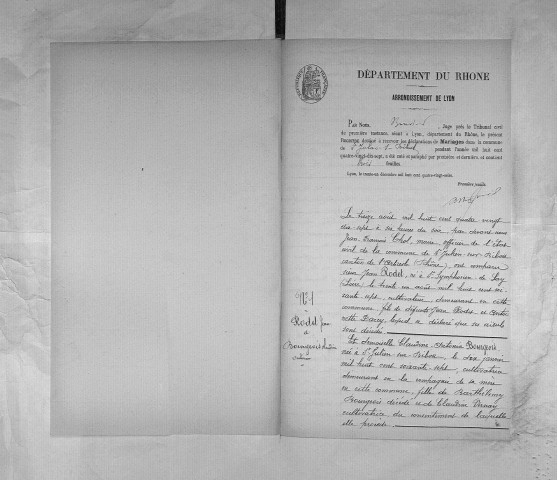 DÉPARTEMENT DU RHONE
ARRONDISSEMENT DE LYON
PAR NOUS, Juge près le Tribunal civil
de première instance séant à Lyon, département du Rhône, le présent
REGISTRE destiné à recevoir les déclarations de Mariages dans la commune
de St Julien s. Bibost pendant l'année mil huit cent
quatre-vingt-dix-sept, a été coté et paraphé par première et dernière, et contient
feuilles.
Lyon, le trente-un décembre mil huit cent quatre-vingt-seize.
Première feuille
Le treize août mil huit cent quatre vingt
dix sept à heures du soir par devant nous
Jean François Chol maire officier de l'état
civil de la commune de St Julien sur Bibost
canton de l'Arbresle (Rhône), ont comparu
sieur Jean Rodet, né à St Symphorien de Lay
(Loire), le trente un août mil huit cent soi
xante sept, cultivateur demeurant en cette
commune, fils de défunts Jean Rodet et
lequel a déclaré que ses aïeuls
sont décédés.
Et demoiselle Claudine Antonia Bourgeois
née à St Julien sur Bibost, le dix janvier
mil huit cent soixante sept, cultivatrice
demeurant en la compagnie de sa mère
en cette commune, fille de Barthélemy
Bourgeois décédé et de Claudine
cultivatrice du consentement de laquelle
elle procède.
N° 1
Rodet Jean
à
Bourgeois Claudine
Antonia